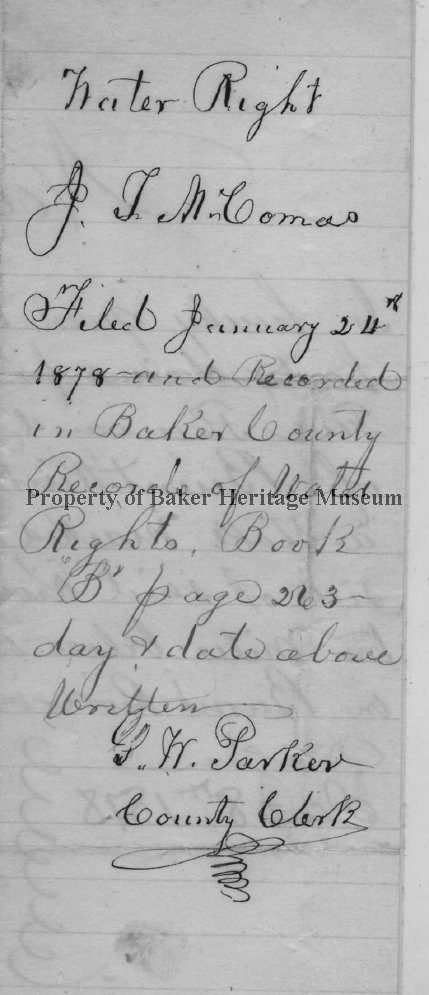 Water Right
J. T. McComas
Filed January 24th
1878 and Recorded
in Baker County
Records of Water
Property of Baker Heritage Museum
Rights, Book
"B" page 263
day & date above
Written
W. Parker
County Clerk